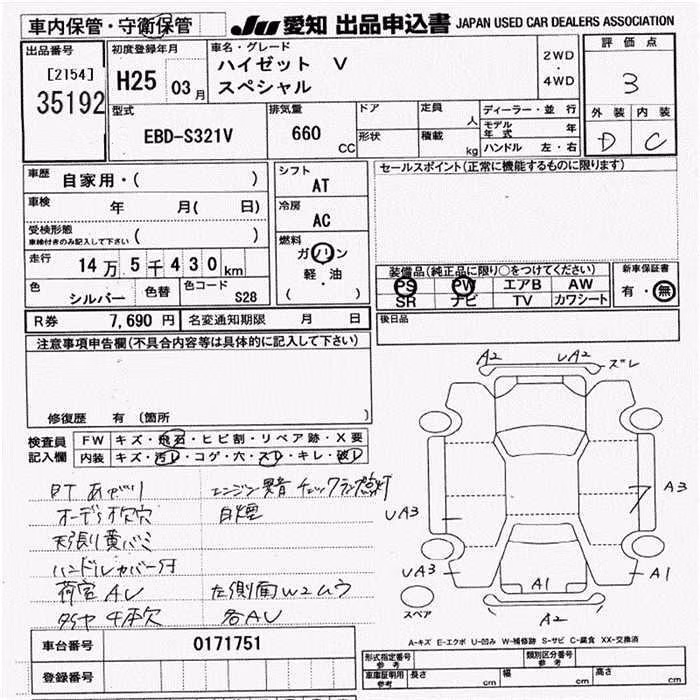 車内保管・守衛保管 JU 愛知 出品申込書 JAPAN USED CAR DEALERS ASSOCIATION
出品番号
[2154]
35192
初度登録年月
H25 03月
車名・グレード
ハイゼット V
スペシャル
2WD
・
4WD
評価点
3
外装 内装
D C
型式
EBD-S321V
排気量
660 CC
ドア
定員 人
形状
積載 kg
ディーラー・並行
モデル年式 年
ハンドル 左・右
車歴 自家用・( )
車検 年 月( 日)
受検形態
車検付きのみ記入して下さい ( )
走行 14万5千430km
色 シルバー 色替 色コード S28
シフト
AT
冷房
AC
燃料
ガソリン
軽・油
( )
セールスポイント(正常に機能するものに限ります)
装備品(純正品に限り○をつけてください)
PS PW エアB AW
SR ナビ TV カワシート
新車保証書
有・無
後日品
R券 7,690円 名変通知期限 月 日
注意事項申告欄(不具合内容等は具体的に記入して下さい)
修復歴 有 〔箇所 〕
検査員
記入欄
FW キズ・飛石・ヒビ割・リペア跡・X要
内装 キズ・汚レ・コゲ・穴・スレ・キレ・破レ
エンジン異音 チェックランプ点灯
オーディオ欠穴 白煙
天張り黄バミ
ハンドルカバー付
荷室AU 左側面W2ムラ
タイヤ4本欠 各AU
A2 UA2 ズレ
UA3 A3
UA3 A1 A1
スペア A2
A-キズ E-エクボ U-凹み W-補修跡 S-サビ C-腐食 XX-交換済
車台番号 0171751
登録番号
形式指定番号
参考
類別区分番号
参考
車庫証明用
参考
長さ cm 幅 cm 高さ cm